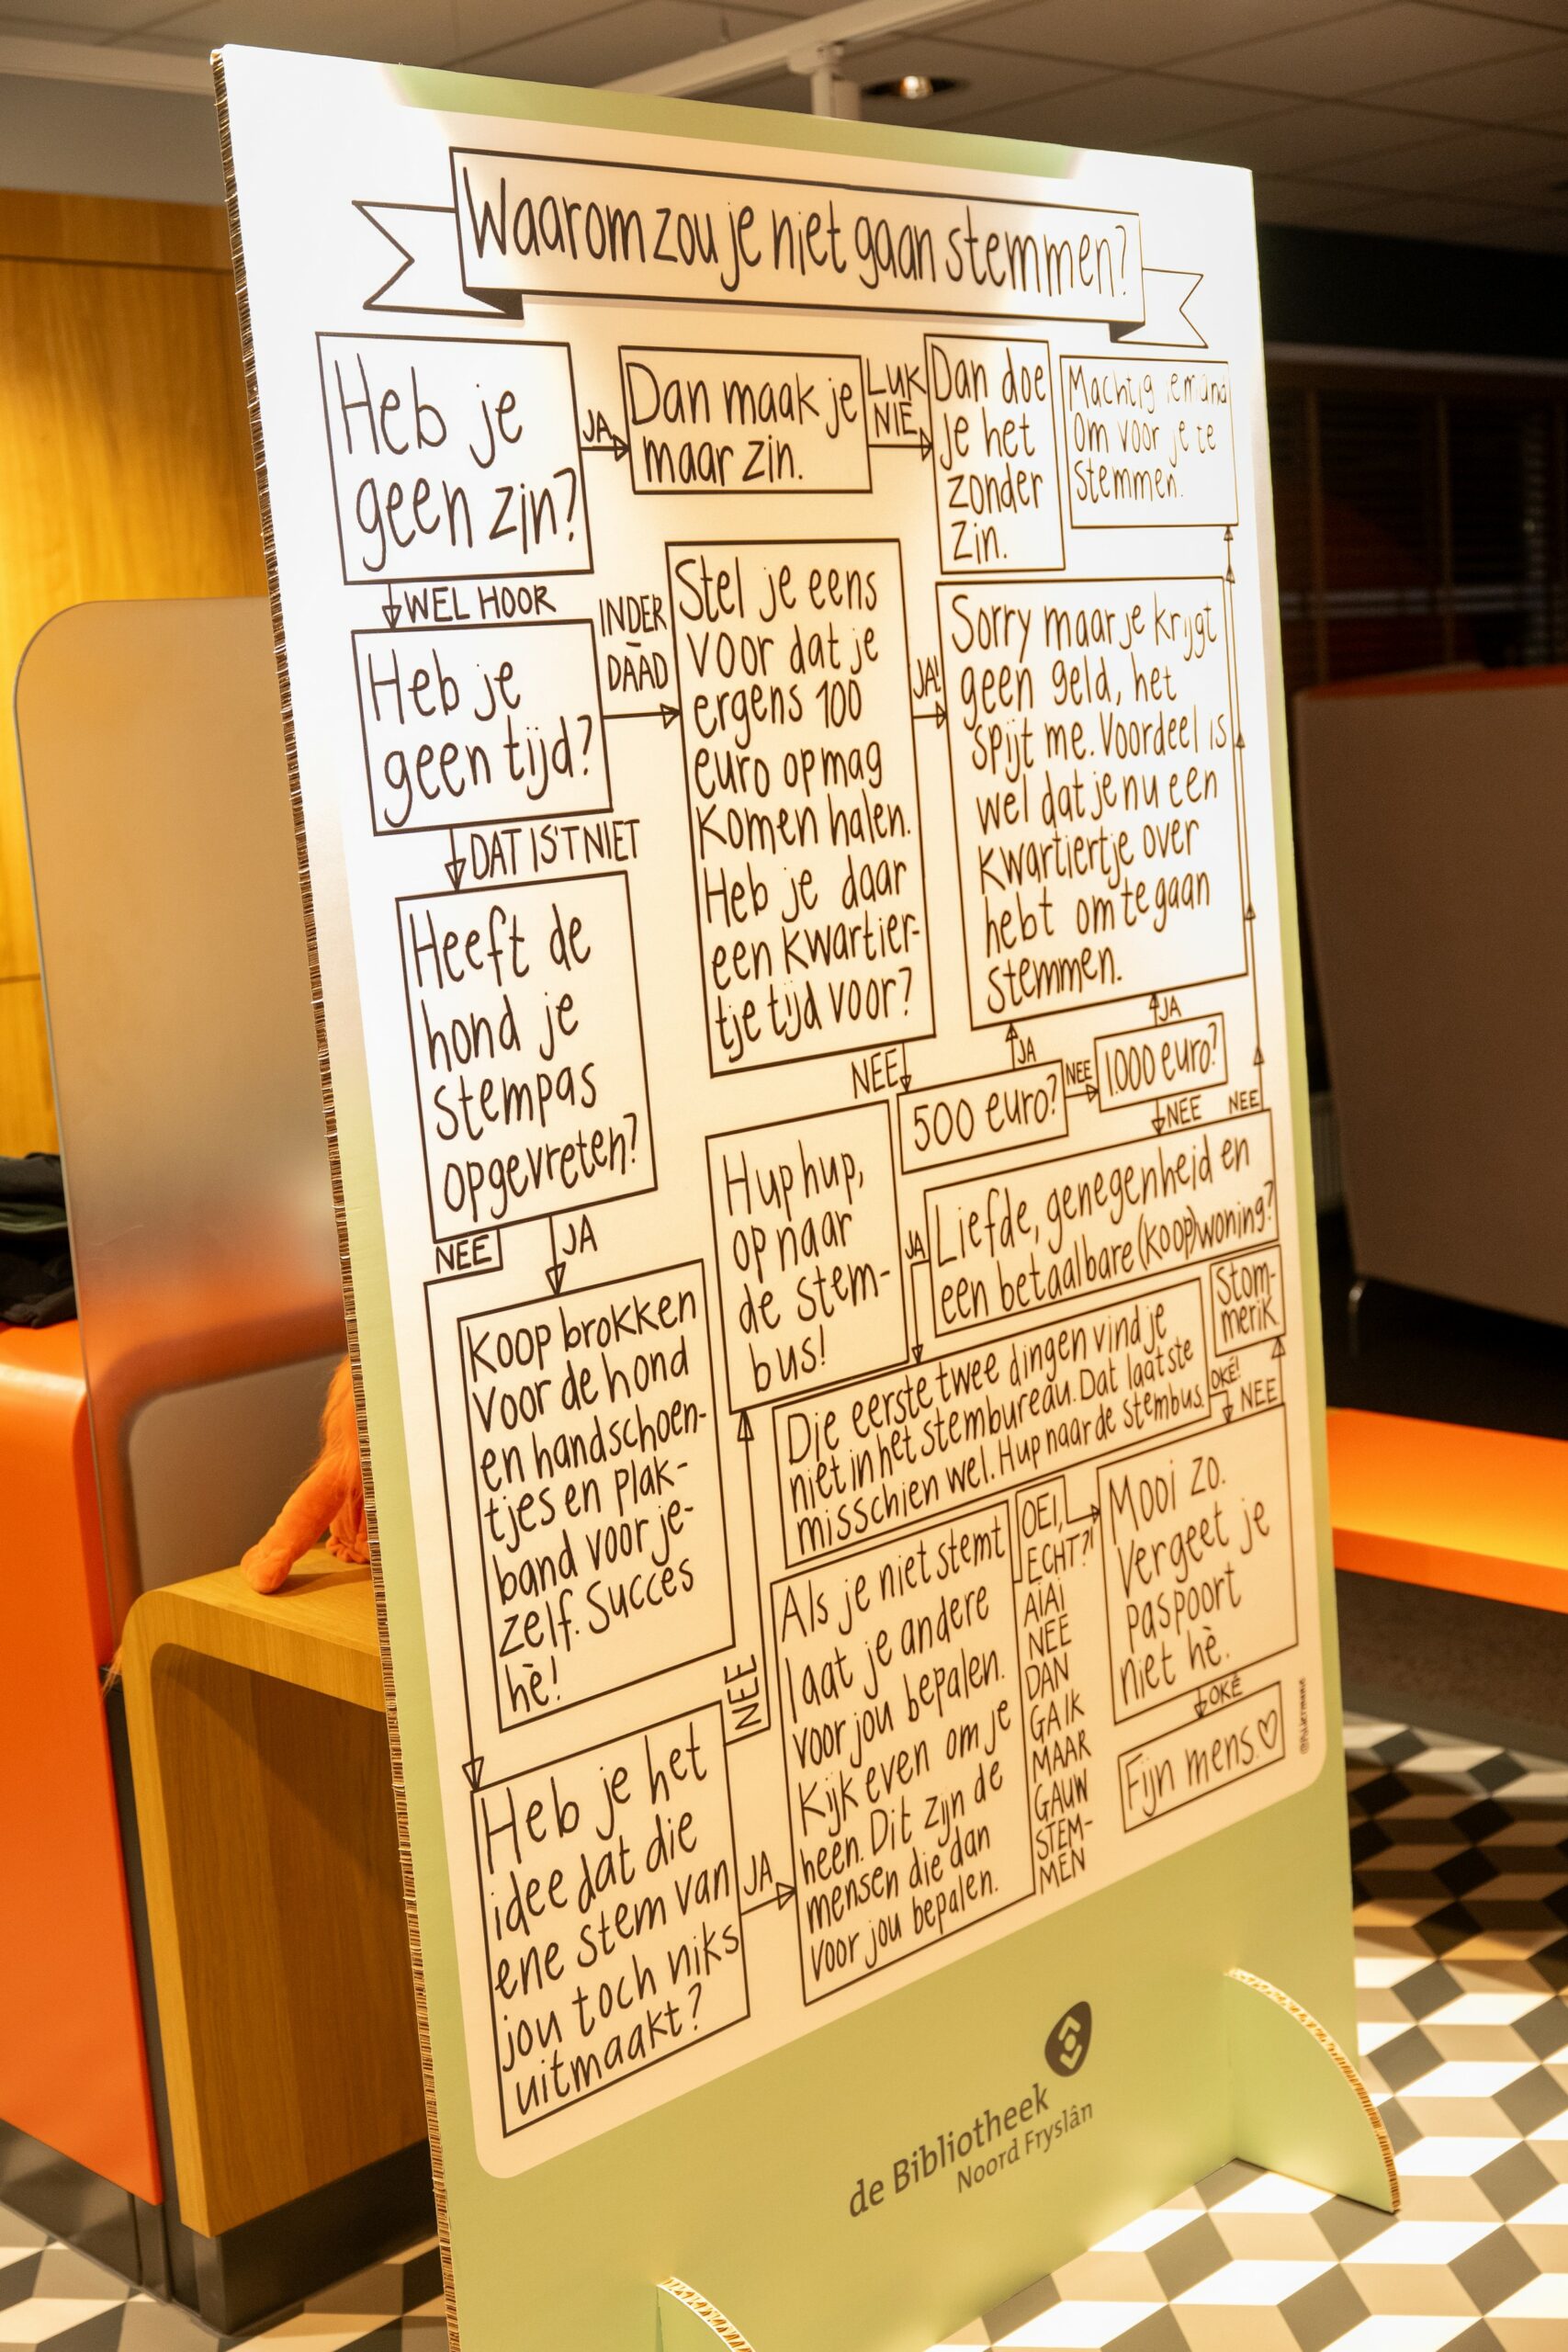 Waarom zou je niet gaan stemmen?
Heb je
geen zin?
JA
Dan maak je
maar zin.
LUK
NIE
Dan doe
je het
zonder
zin.
Machtig iemand
om voor je te
stemmen.
WEL HOOR
Heb je
geen tijd?
INDER
DAAD
Stel je eens
voor dat je
ergens 100
euro op mag
komen halen.
Heb je daar
een kwartier-
tje tijd voor?
JA!
Sorry maar je krijgt
geen geld, het
spijt me. Voordeel is
wel dat je nu een
kwartiertje over
hebt om te gaan
stemmen.
DAT IS 'T NIET
Heeft de
hond je
stempas
opgevreten?
NEE
500 euro?
JA
NEE
1.000 euro?
JA
NEE
NEE
Liefde, genegenheid en
een betaalbare (koop)woning?
JA
Hup hup,
op naar
de stem-
bus!
Die eerste twee dingen vind je
niet in het stembureau. Dat laatste
misschien wel. Hup naar de stembus.
Stom-
merik
OKÉ!
NEE
NEE
JA
Koop brokken
voor de hond
en handschoen-
tjes en plak-
band voor je-
zelf. Succes
hè!
Heb je het
idee dat die
ene stem van
jou toch niks
uitmaakt?
NEE
JA
Als je niet stemt
laat je andere
voor jou bepalen.
Kijk even om je
heen. Dit zijn de
mensen die dan
voor jou bepalen.
OEI,
ECHT?!
AIAI
NEE
DAN
GA IK
MAAR
GAUW
STEM-
MEN
Mooi zo.
Vergeet je
paspoort
niet hè.
OKÉ
Fijn mens.♡
de Bibliotheek
Noord Fryslân